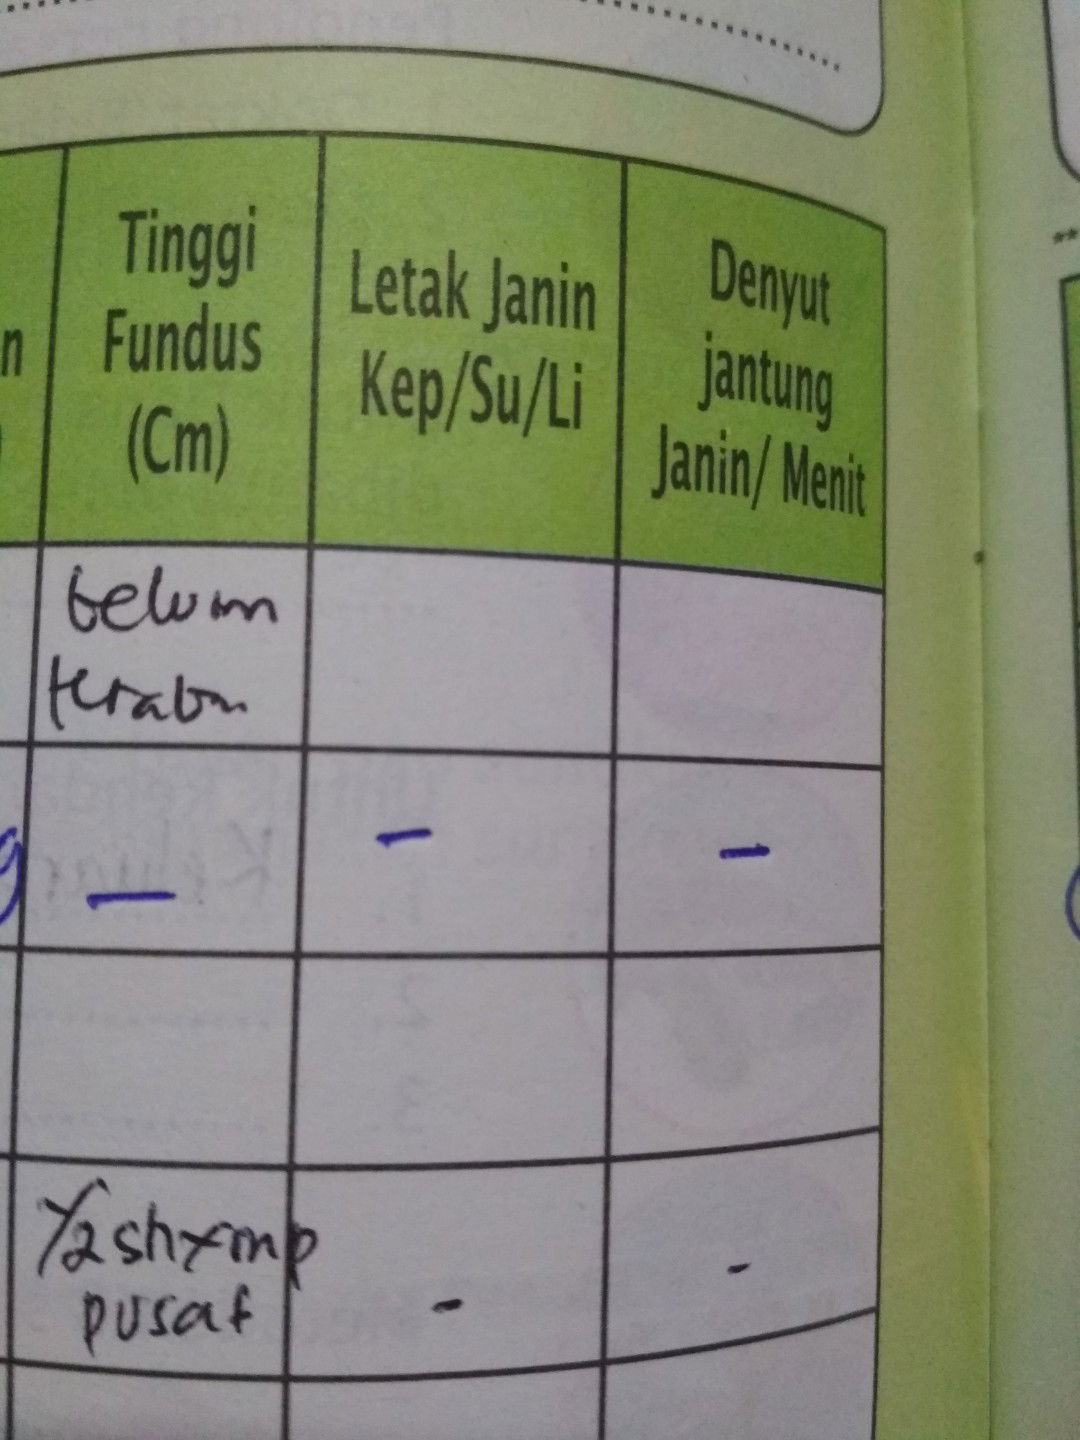 Tinggi
Fundus
(Cm)
Letak Janin
Kep/Su/Li
Denyut
jantung
Janin/ Menit
belum
-
-
-
pusat
-
-